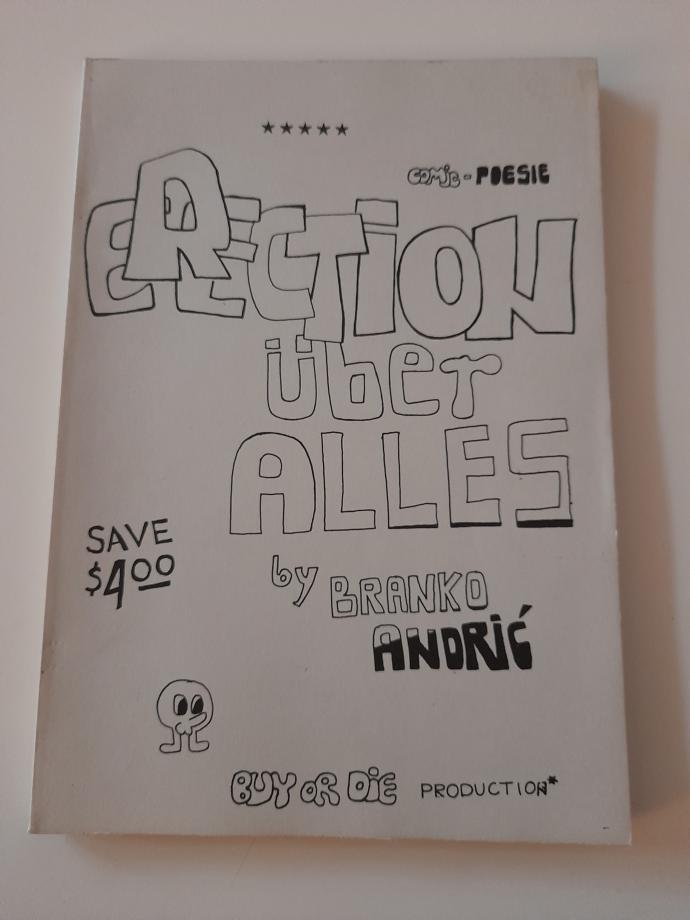 ★★★★★
COMIC-POESIE
ERECTION
über
ALLES
SAVE
$4.00
by BRANKO
ANDRIĆ
BUY OR DIE PRODUCTION*